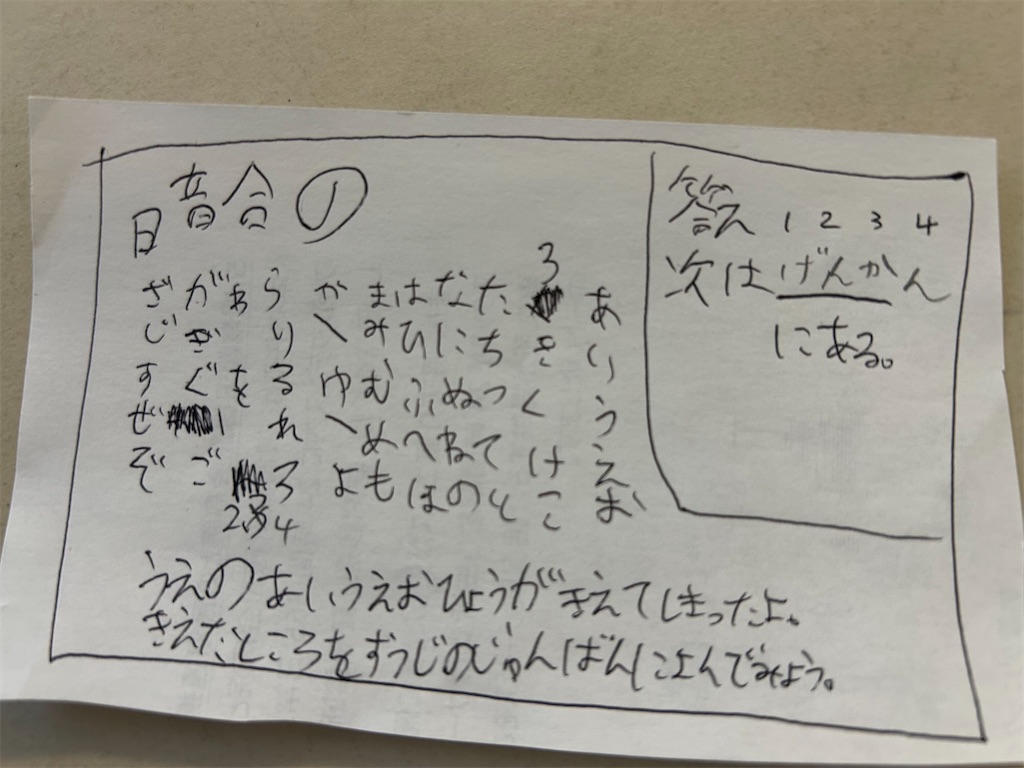 日音合①
3
あいうえお
きくけこ
たちつてと
なにぬねの
はひふへほ
まみむめも
や\ゆ\よ
らりるれろ
わを
がぎぐ1ご
ざじずぜぞ
2 4
うえのあいうえおひょうがきえてしまったよ。
きえたところをすうじのじゅんばんによんでみよう。
答え 1 2 3 4
次はげんかん
にある。